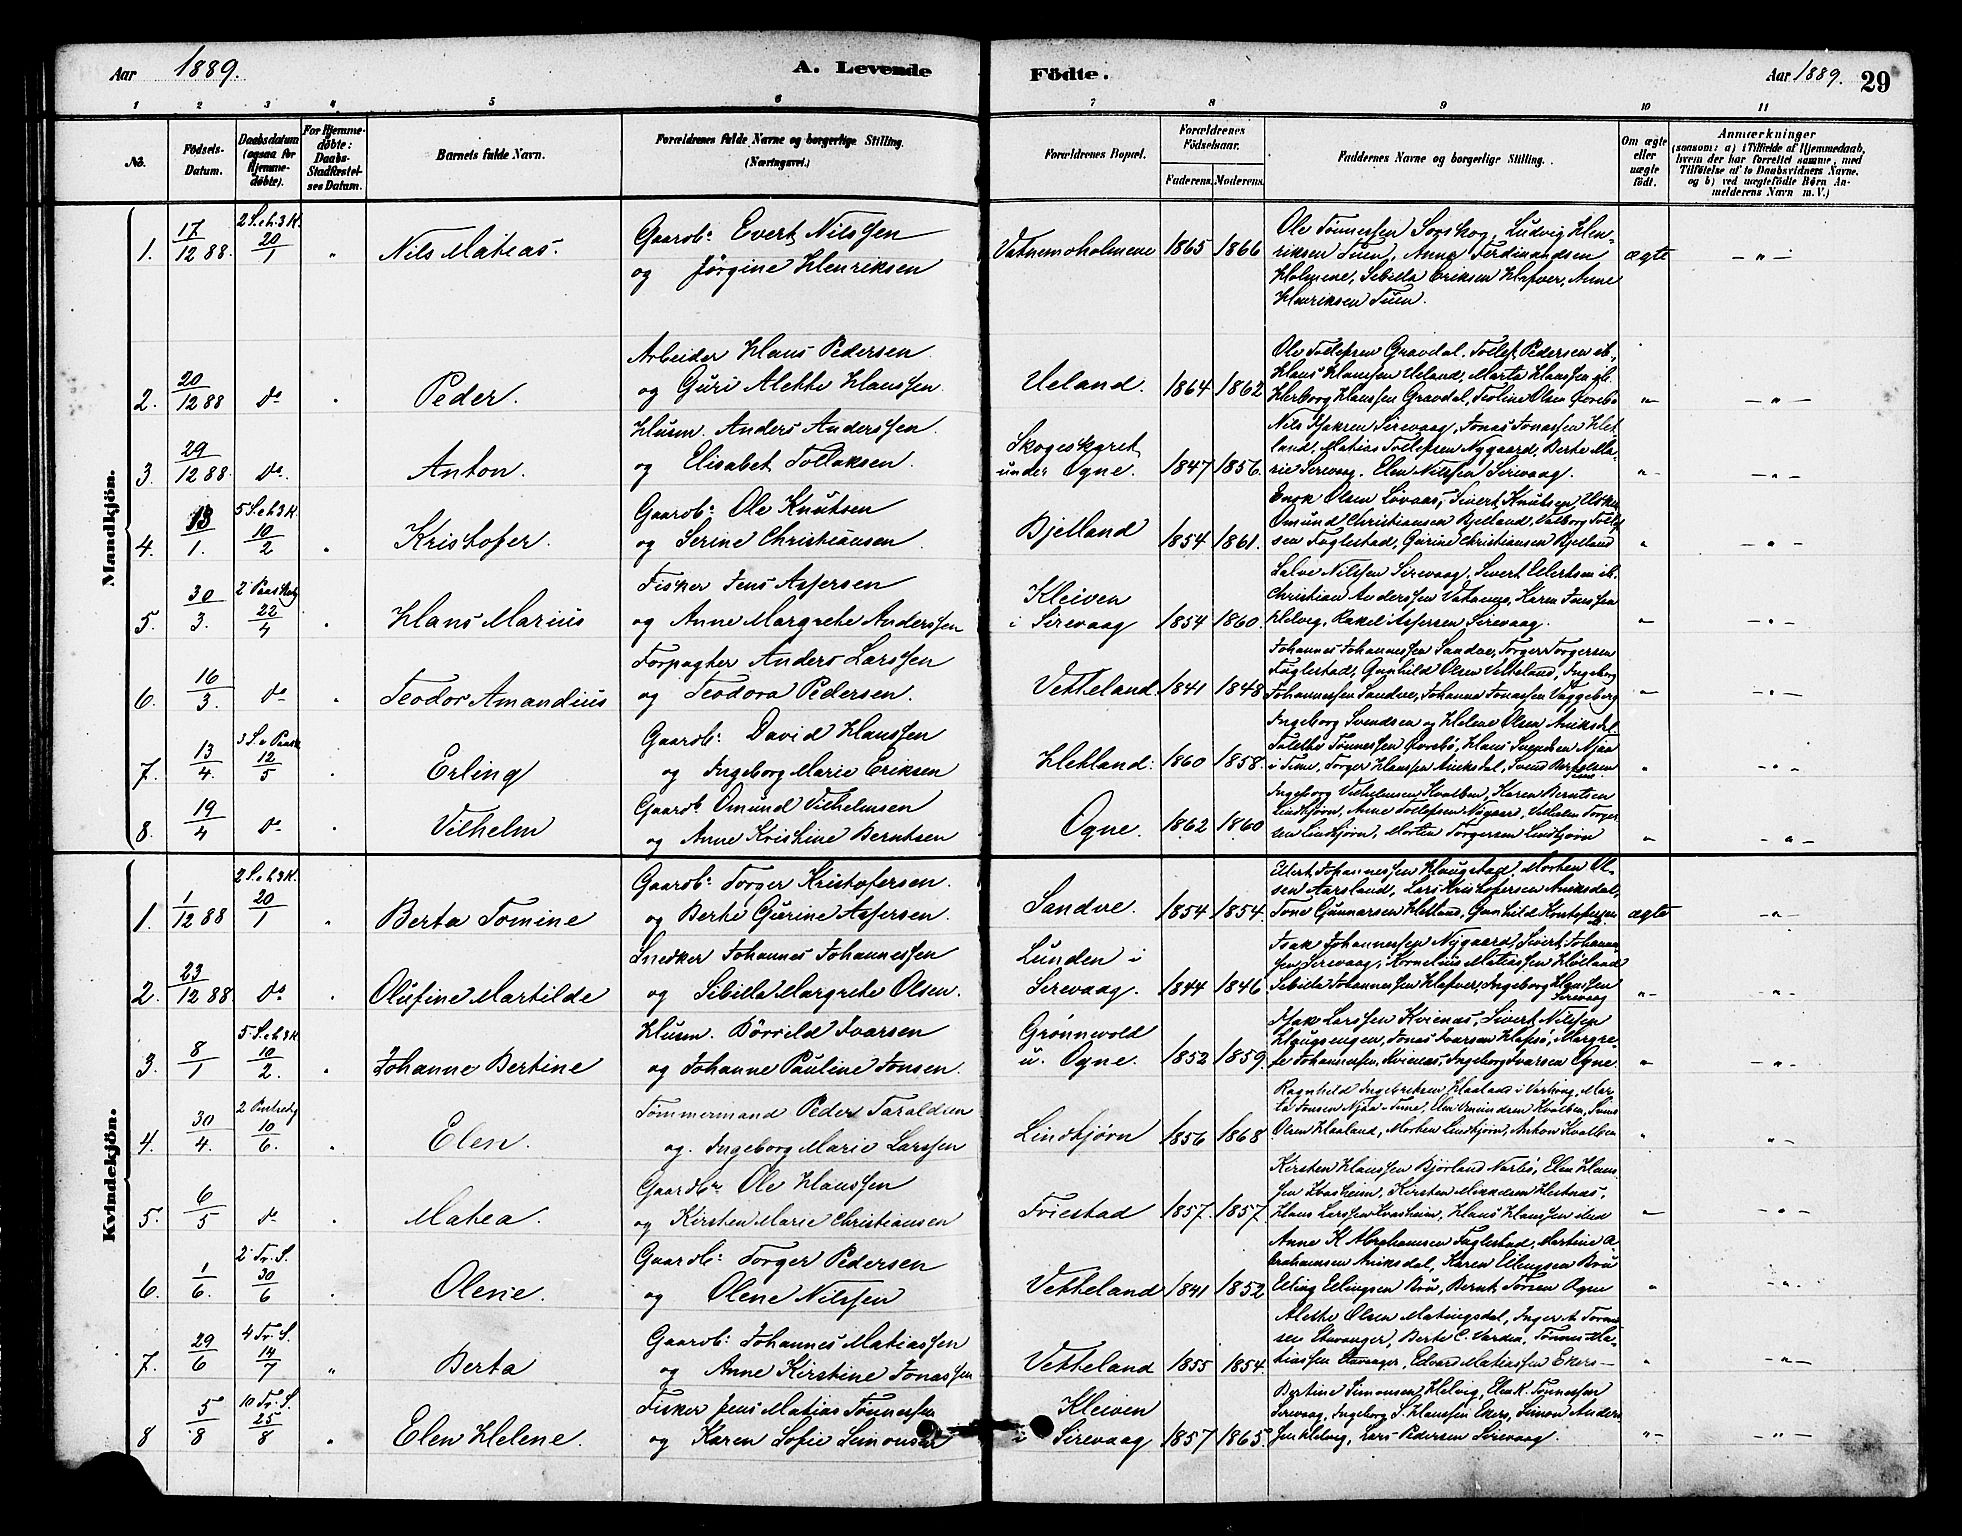 Aar 1889. A. Levende Födte. Aar 1889. 29
1 2 3 4 5 6 7 8 9 10 11
No. Födsels-Datum. Daabsdatum (ogsaa for Hjemme-døbte). For Hjemme-døbte: Daabs-Stadfæstel-ses Datum. Barnets fulde Navn. Forældrenes fulde Navne og borgerlige Stilling. (Næringsvei.) Forældrenes Bopæl. Forældrenes Födselsaar. Faderens. Moderens. Faddernes Navne og borgerlige Stilling. Om ægte eller uægte født. Anmærkninger (saasom: a) i Tilfælde af Hjemmedaab, hvem der har forrettet samme, med Tilføielse af to Daabsvidners Navne, og b) ved uægtefødte Børn An-melderens Navn m.V.)
Mandkjön.
1. 17/12 88. 2 S. e. h. 3 K. 20/1 " Nils Matias. Gaardb: Evert Nilssen
og Jørgine Henriksen
Vatnemoholmene 1865 1866
Ole Tønnessen Sorskog, Ludvig Hen-
riksen Tuen, Anne Ferdinandsen
Holmene, Sibilla Eriksen Hafver, Anne
Henriksen Tuen.
ægte - " -
2. 20/12 88 do " Peder. Arbeider Hans Pedersen
og Guri Alette Hanssen.
Ueland. 1864 1862
Ole Tollefsen Gravdal, Tollef Pedersen ib.,
Hans Hanssen Ueland, Marta Hanssen ib.
Herborg Hanssen Gravdal, Teoline Olsen Øvrebø
"- - " -
3. 29/12 88 do. " Anton. Husm. Anders Anderssen.
og Elisabet Tollaksen.
Skogeskaret
under Ogne. 1847 1856.
land, Matias Tollefsen Nygaard, Berte Ma-
rie Sirevaag, Elen Nilssen Sirevaag.
"- - " -
4. 13/1. 5 S. e. h. 3 K. 10/2 " Kristofer. Gaardb: Ole Knutsen
og Serine Christiansen
Bjelland 1854 1861.
Enok Olsen Løvaas, Sivert Knutsen
Omund Christiansen Bjelland, Valborg Tollef-
sen Fuglestad, Gurine Christiansen Bjelland
" - " -
5. 30/3. 2 Paaskedg 22/4 " Hans Marius Fisker Jens Assersen
og Anne Margrete Anderssen
Kleiven
i Sirevaag 1854 1860.
Salve Nilssen Sirevaag, Sivert Eilertsen ib.
Christian Anderssen Vatnemo, Karen Jonssen
Helvig, Rakel Assersen Sirevaag.
"- - " -
6. 16/3. do " Teodor Amandius Forpagter Anders Larssen
og Teodora Pedersen.
Vetteland 1841 1848
Johannes Johannessen Sandve, Torger Torgersen
Fuglestad, Gunhild Olsen Vetteland, Ingeborg
Johannessen Sandve, Johanne Jonassen Vaggeberg
"- - " -
7. 13/4. 3 S. e. Paaske 12/5 " Erling Gaardb: David Hanssen
og Ingeborg Marie Eriksen
Hetland: 1860 1858.
Ingeborg Svendsen og Helene Olsen Aniksdal
Talette Tønnessen Øvrebø, Hans Svendsen Njaa
i Time, Torger Hanssen Aniksdal, Svend Bertelsen
" - " -
8. 19/4 do " Vilhelm Gaardb Omund Vilhelmsen
og Anne Kristine Berntsen
Ogne. 1862 1860
Ingeborg Vilhelmsen Kvalben, Karen Berntsen
Lindtjørn, Anne Tollefsen Nygaard, Vilhelm Torger-
sen Lindtjørn, Morten Torgersen Lindtjørn
" - " -
Kvindekjön.
1. 1/12 88 2 S. e. h. 3 K. 20/1 " Berta Tomine Gaardb: Torger Kristofersen.
og Berte Gurine Assersen.
Sandve. 1854 1854.
Eilert Johannessen Haugstad, Morten Ol-
sen Aarsland, Lars Kristofersen Aniksdal,
Tone Gunnarsen Hetland, Gunhild
ægte - " -
2. 23/12 88. do " Olufine Martilde Snedker Johannes Johannessen
og Sibilla Margrete Olsen.
Lunden i
Sirevaag. 1844 1846
Isak Johannessen Nygaard, Sivert Johannes-
sen Sirevaag, Kornelius Matiassen Høiland
Sibilla Johannessen Hafver, Ingeborg Hanssen
Sirevaag
"- - " -
3. 8/1 5 S. e. h. 3 K. 10/2. " Johanne Bertine Husm. Börrild Ivarsen
og Johanne Pauline Jonsen.
Grønnevold
u. Ogne. 1852 1859.
Isak Larssen Kvienæs, Sivert Nilssen
Haugsengen, Jonas Ivarsen Hafsø, Margre-
te Johannessen, Kvienæs, Ingeborg Ivarsen Ogne.
" - " -
4. 30/4. 2 Pintsedg 10/6. " Elen. Tømmermand Peder Taraldsen
og Ingeborg Marie Larssen
Lindtjørn 1856 1868
Ragnhild Ingebretsen Haaland i Varhaug, Mar-
ta Jonsen Njaa - Time, Elen Omundsen Kvalben, Svend
Olsen Haaland, Morten Lindtjørn, Anton Kvalben
" " -
5. 6/5 do " Matea. Gaardbr Ole Hanssen
og Kirsten Marie Christiansen
Friestad 1857 1857.
Kirsten Hanssen Bjorland Narbø, Elen Hans-
sen Kvasheim, Kirsten Mikkelsen Hestnæs,
Hans Larssen Kvasheim, Hans Hanssen
"- - " -
6. 1/6. 2 Tr. S. 30/6 " Olene. Gaardb: Torger Pedersen
og Olene Nilssen
Vetteland 1841 1852
Anne K Abrahamsen Fuglestad, Martine A-
brahamsen Aniksdal, Karen Ellingsen Bru
Elling Ellingsen Bru, Bernt Torsen Ogne
" - " -
7. 29/6 4 Tr. S. 14/7 " Berta Gaardb: Johannes Matiassen
og Anne Kirstine Jonassen
Vetteland 1855 1854.
Alette Olsen Matingsdal, Ingert
sen Stavanger, Berte C. Varden, Tønnes Ma-
tiassen Stavanger, Edvard Matiassen Ekers-
" - " -
8 5/8 10 Tr. S. 25/8 " Elen Helene. Fisker Jens Matias Tønnessen
og Karen Sofie Simonsen
Kleiven
i Sirevaag 1857 1865.
Bertine Simonsen Helvig, Elen K. Tønnessen
Sirevaag, Ingeborg S. Hanssen Ekers, Simon Anders-
sen Helvig, Lars Pedersen Sirevaag.
"- - " -